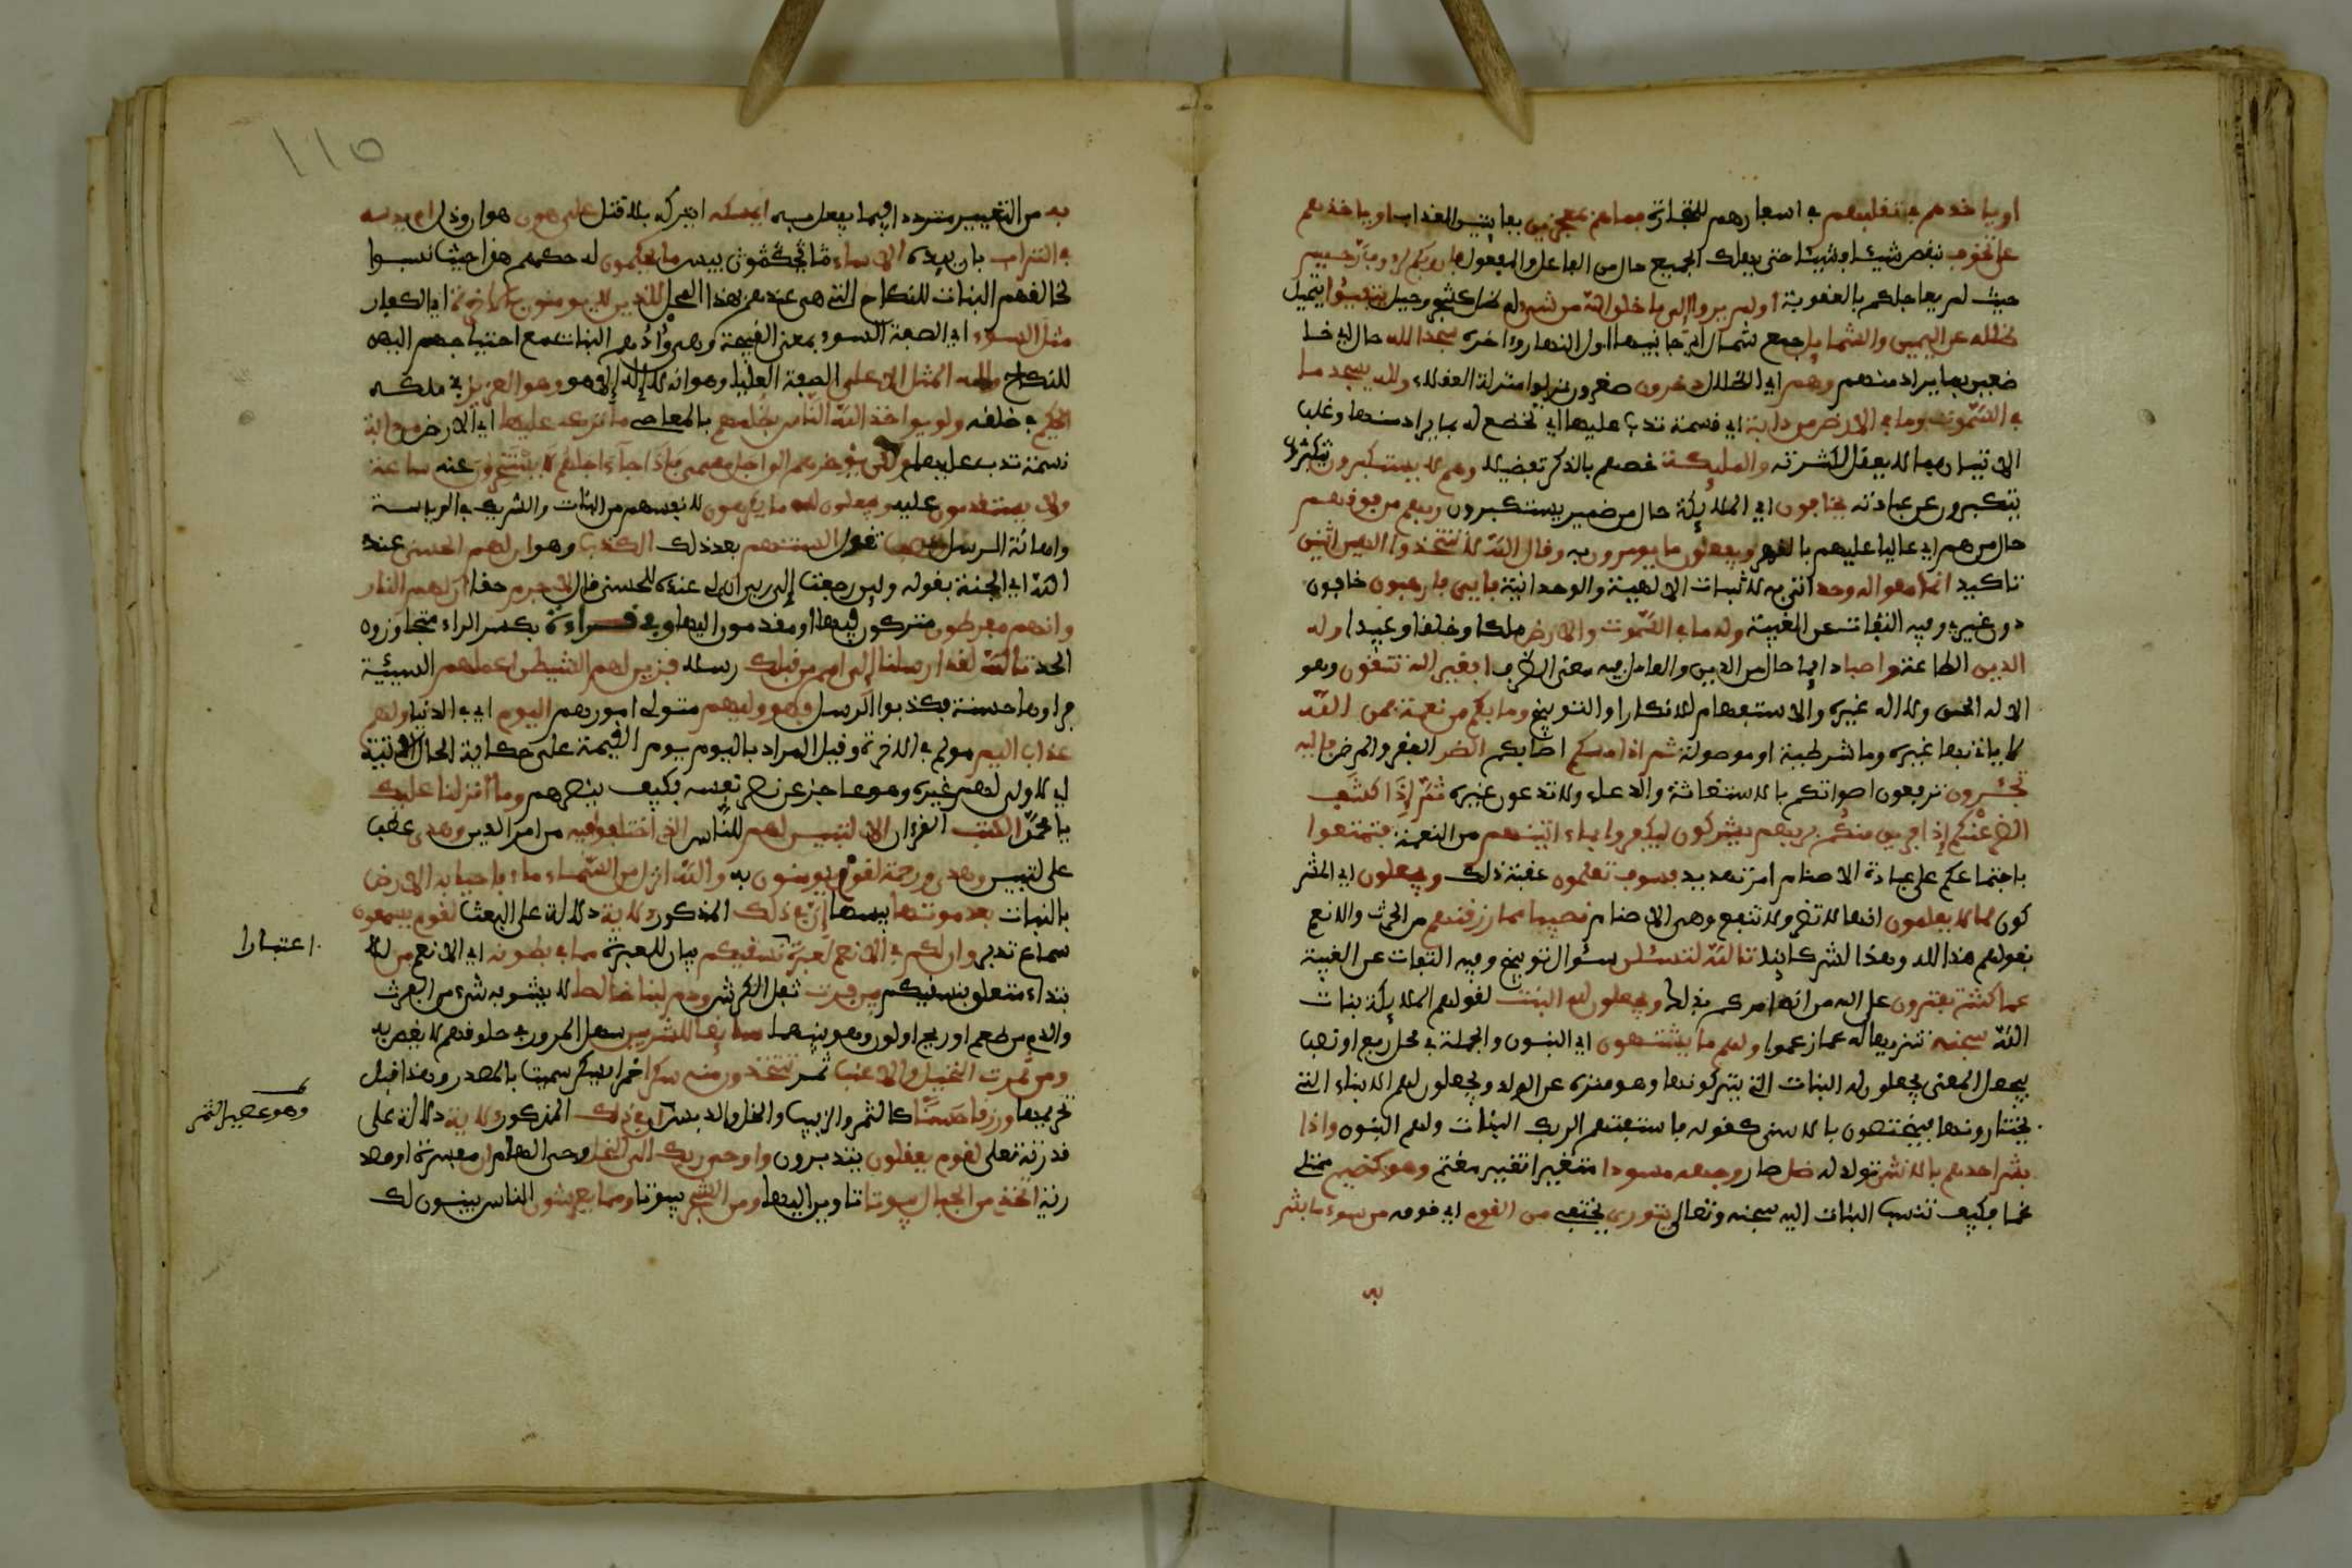 او ياخذهم في تقلبهم في اسفارهم للتجارة فما هم بمعجزين بفايتين العذاب او ياخذهم
على تخوف تنقص شيئا فشيئا حتى يهلك الجميع حال من الفاعل والمفعول فان ربكم لرءوف رحيم
حيث لم يعاجلكم بالعقوبة اولم يروا الى ما خلق الله من شيء له ظل كشجر وجبل يتفيؤا يتميل
ظلله عن اليمين والشمايل جمع شمال اي جانبيها اول النهار وءاخره سجدا لله حال اي خا
ضعين بما يراد منهم وهم اي الظلال دخرون صغرون نزلوا منزلة العقلاء ولله يسجد ما
في السموت وما في الارض من دابة اي نسمة تدب عليها اي تخضع له بما يراد منها وغلب
الاتيان بما لا يعقل لكثرته والمليكة خصهم بالذكر تفضيلا وهم لا يستكبرون
يتكبرون عن عبادته يخافون اي الملايكة حال من ضمير يستكبرون ربهم من فوقهم
حال من هم اي عاليا عليهم بالقهر ويفعلون ما يومرون به وقال الله لا تتخذوا الهين اثنين
تاكيد انما هو اله وحد اتى به لاثبات الالهية والوحدانية فايي فارهبون خافون
دون غيري وفيه التفات عن الغيبة وله ما في السموت والارض ملكا وخلقا وعبيدا وله
الدين الطاعة واصبا دايما حال من الدين والعامل فيه معنى الظرف افغير الله تتقون وهو
الاله الحق ولا اله غيره والاستفهام للانكار او التوبيخ وما بكم من نعمة فمن الله
لا ياتي بها غيره وما شرطية او موصولة ثم اذا مسكم اصابكم الضر الفقر والمرض فاليه
تجـرون ترفعون اصواتكم بالاستغاثة والدعاء ولا تدعون غيره ثم إذا كشف
الضر عنكم إذا فريق منكم بربهم يشركون ليكفروا بما ءاتينهم من النعمة فتمتعوا
باجتماعكم على عبادة الاصنام امر تهديد فسوف تعلمون عقبة ذلك ويجعلون اي المشر
كون لما لا يعلمون انها لا تضر ولا تنفع وهي الاصنام نصيبا مما رزقنهم من الحرث والانعم
بقولهم هذا لله وهذا لشركاينا تالله لتسئلن سئوال توبيخ وفيه التفات عن الغيبة
عما كنتم تفترون على الله من انه امركم بذلك ويجعلون لله البنت بقولهم الملايكة بنات
الله سبحنه تنزيها له عما زعموا ولهم ما يشتهون اي البنون والجملة في محل رفع او نصب
بيجعل المعنى يجعلون له البنات التي يكرهونها وهو منزه عن الولد ويجعلون لهم الابناء التي
يختارونها فيختصون بالاسنى كقوله فاستفتهم الربك البنات ولهم البنون واذا
بشر احدهم بالانثى تولد له ظل صار وجهه مسودا متغيرا تغيير مغتم وهو كظيم ممتلئ
غما فكيف تنسب البنات اليه سبحنه وتعالى يتورى يختفي من القوم اي قومه من سوء ما بشر
به
١١٥
به من التعيير مترددا فيما يفعل به ايمسكه ايتركه بلا قتل على هون هوان وذل ام يدسه
في التراب بان يئده الا ساء ما يحكمون بيس ما يحكمون له حكمهم هذا حيث نسبوا
لخالقهم البنات التي هي عندهم بهذا المحل للذين لا يومنون بالاخرة اي الكفار
مثل السوء اي الصفة السوء بمعنى القبيحة وهي وأدهم البنات مع احتياجهم اليهن
للنكاح ولله المثل الاعلى الصفة العليا وهو انه لا إله إلا هو وهو العزيز في ملكه
الحكيم في خلقه ولو يواخذ الله الناس بظلمهم بالمعاصي ما ترك عليها اي الارض من دابة
نسمة تدب عليها ولكن يؤخرهم الى اجل مسمى فاذا جاء اجلهم لا يستئخرون عنه ساعة
ولا يستقدمون عليه ويجعلون لله ما يكرهون لانفسهم من البنات والشريك في الرياسة
واهانة الرسل وتصف تقول السنتهم بعد ذلك الكذب وهو ان لهم الحسنى عند
الله اي الجنة بقوله ولين رجعت إلى ربي ان لي عنده للحسنى قال لا جرم حقا ان لهم النار
وانهم مفرطون متركون فيها او مقدمون اليها وفي قراءة بكسر الراء متجاوزون
الحد تالله لقد ارسلنا إلى امم من قبلك رسلا فزين لهم الشيطن اعملهم السيئة
فراوها حسنة فكذبوا الرسل فهو وليهم متولي امورهم اليوم اي في الدنيا ولهم
عذاب اليم مولم في الاخرة وقيل المراد باليوم يوم القيمة على حكاية الحال الاتية
اي لا ولي لهم غيره وهو عاجز عن نصر نفسه فكيف ينصرهم وما أنزلنا عليك
يا محمد الكتب القرءان الا لتبين لهم للناس الذي اختلفوا فيه من امر الدين وهدى عطف
على لتبين وهدى ورحمة لقوم يومنون به والله انزل من السماء ماء فاحيا به الارض
بالنبات بعد موتها يبسها إن في ذلك المذكور لاية دلالة على البعث لقوم يسمعون
سماع تدبر وان لكم في الانعم لعبرة نسقيكم بيان للعبرة مما في بطونه اي الانعم من للا
بتداء متعلق بنسقيكم بين فرث ثفل الكرش ودم لبنا خالصا لا يشوبه شيء من الفرث
والدم من طعم او ريح او لون وهو بينهما سايغا للشربين سهل المرور في حلوقهم لا يغص به
ومن ثمرت النخيل والاعنب ثمر تتخذون منه سكرا خمرا يسكر سميت بالمصدر وهذا قبل
تحريمها ورزقا حسنا كالتمر والزبيب والخل والدبس ان في ذلك المذكور لاية دلالة على
قدرته تعلى لقوم يعقلون يتدبرون واوحى ربك الى النحل وحي الهام ان مفسرة او مصد
رية اتخذي من الجبال بيوتا تاوين اليها ومن الشجر بيوتا ومما يعرشون الناس يبنون لك
اعتبارا
وهو عصير التمر